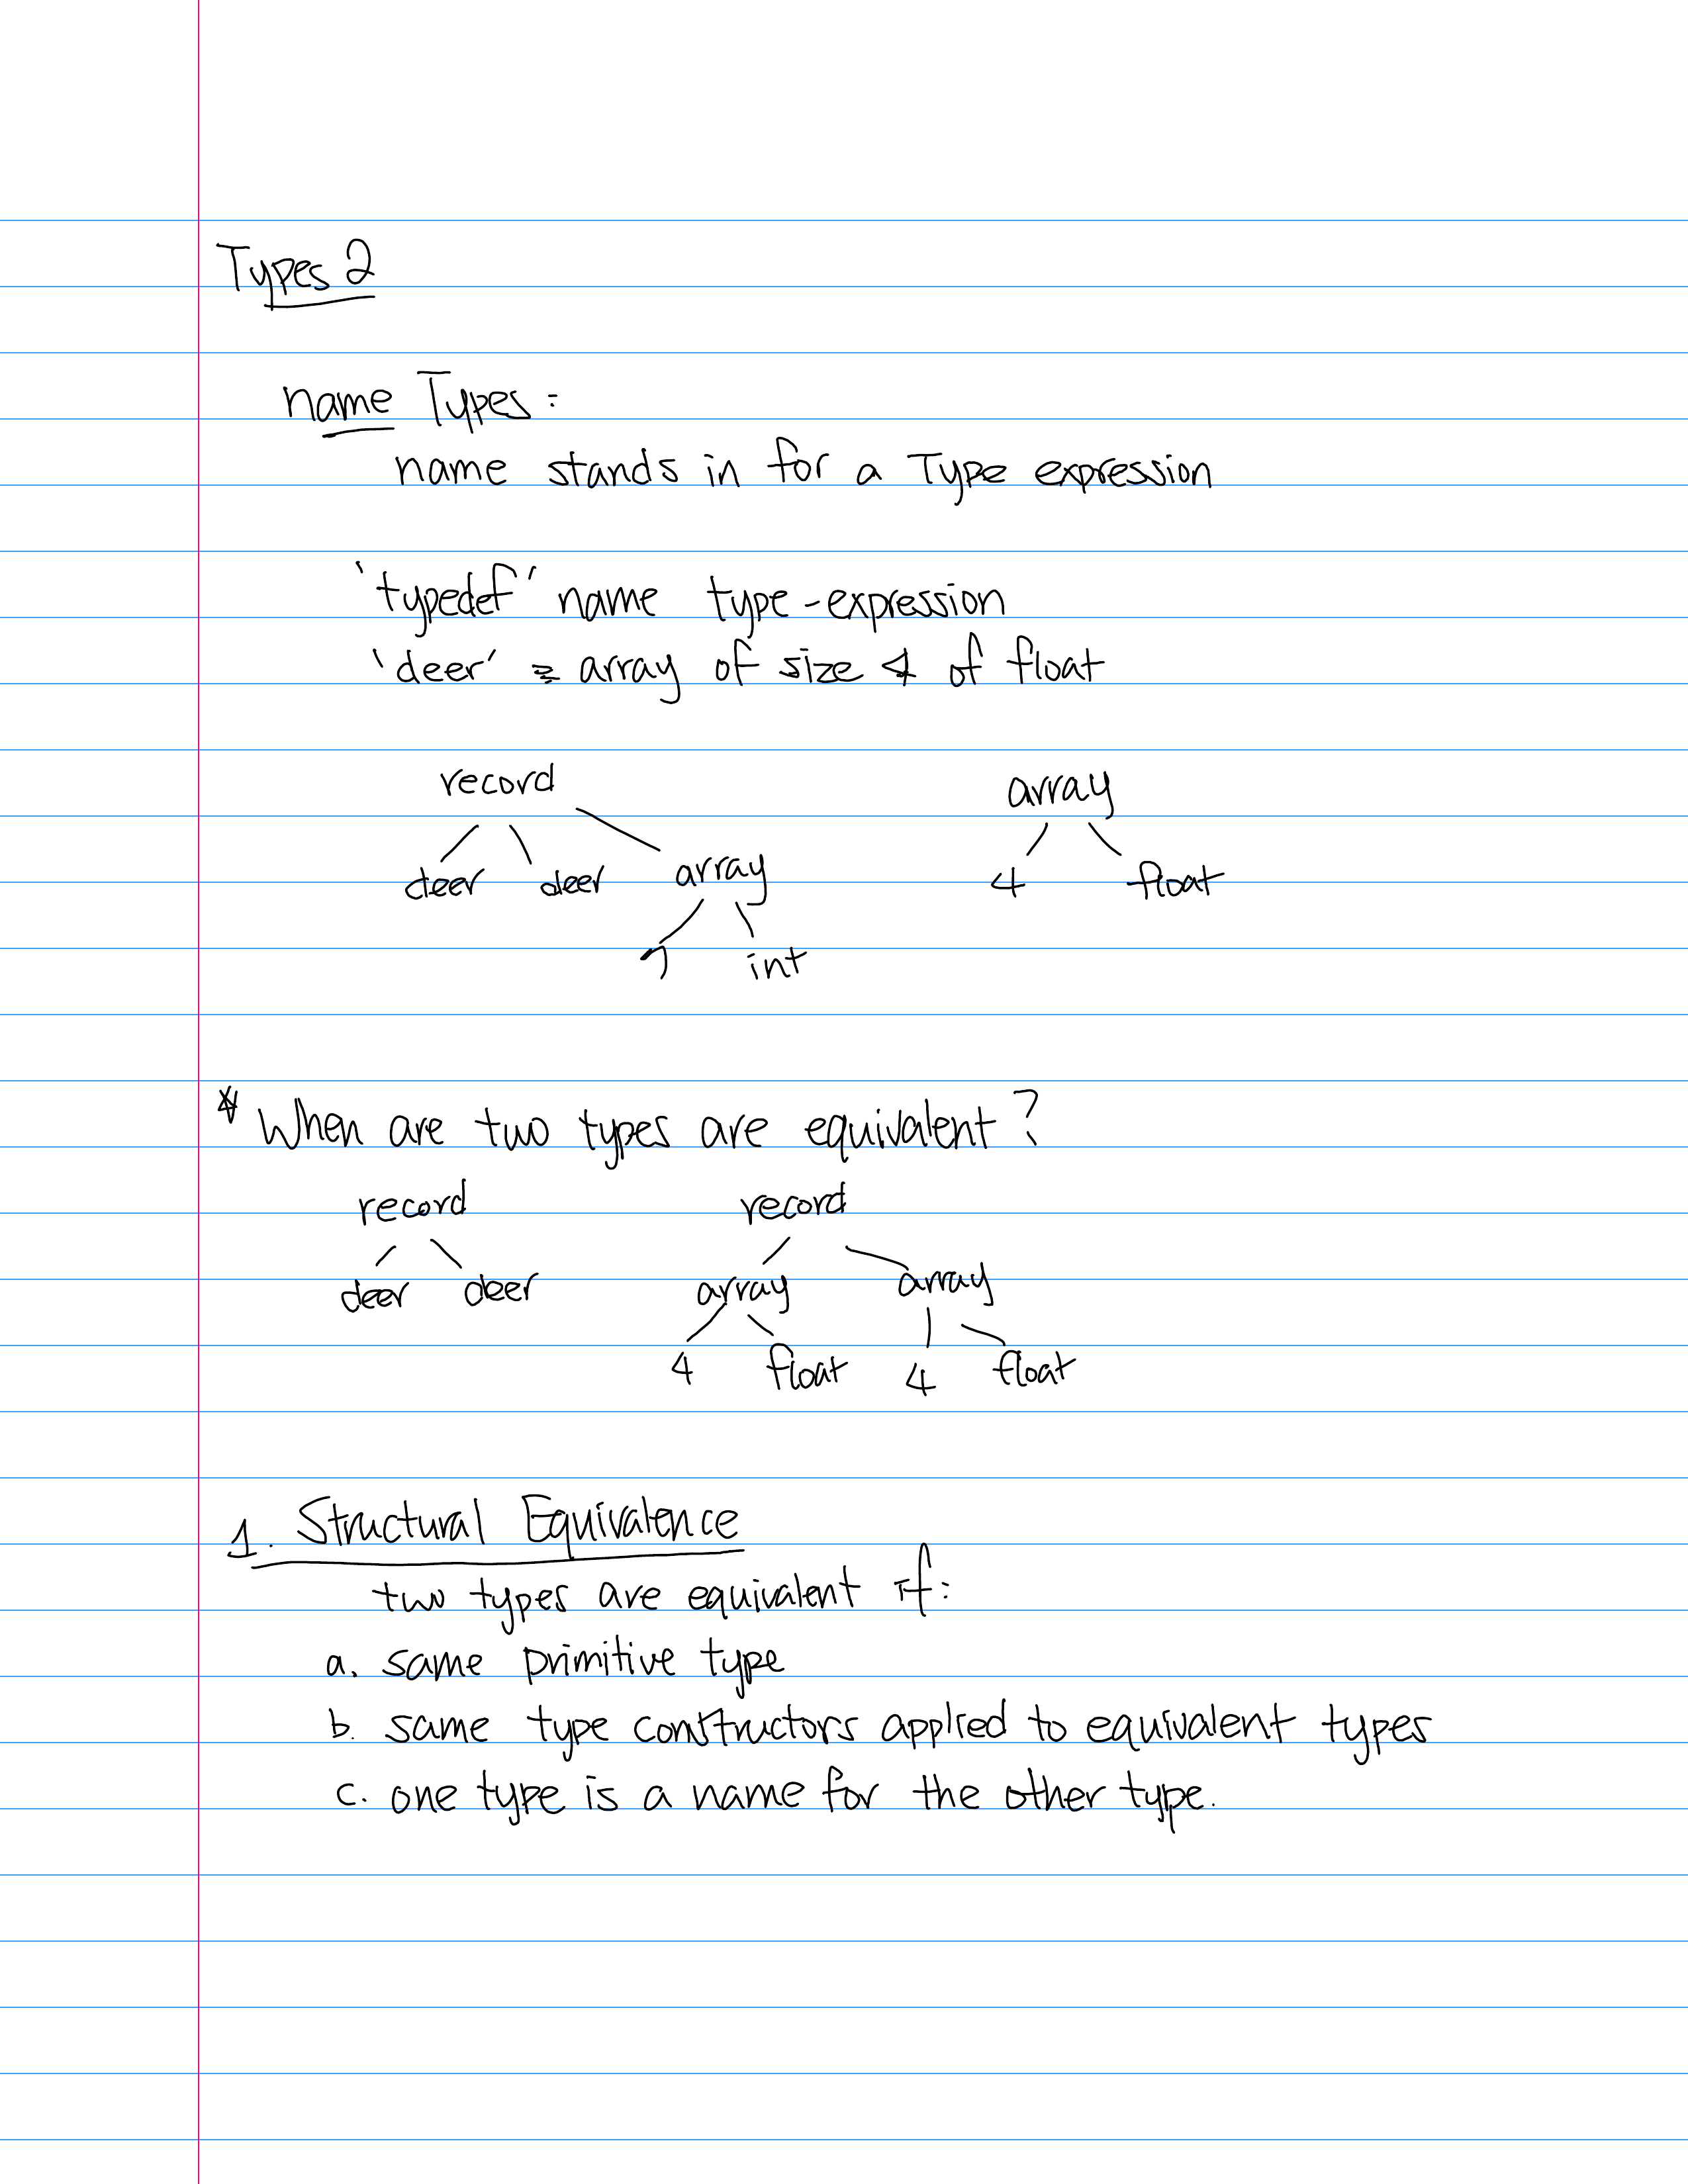 Types 2
name Types:
name stands in for a Type expression
'typedef' name type-expression
'deer' = array of size 4 of float
record array
deer deer array 4 float
7 int
* When are two types are equivalent?
record record
deer deer array array
4 float 4 float
1. Structural Equivalence
two types are equivalent if:
a. same primitive type
b. same type constructors applied to equivalent types
c. one type is a name for the other type.